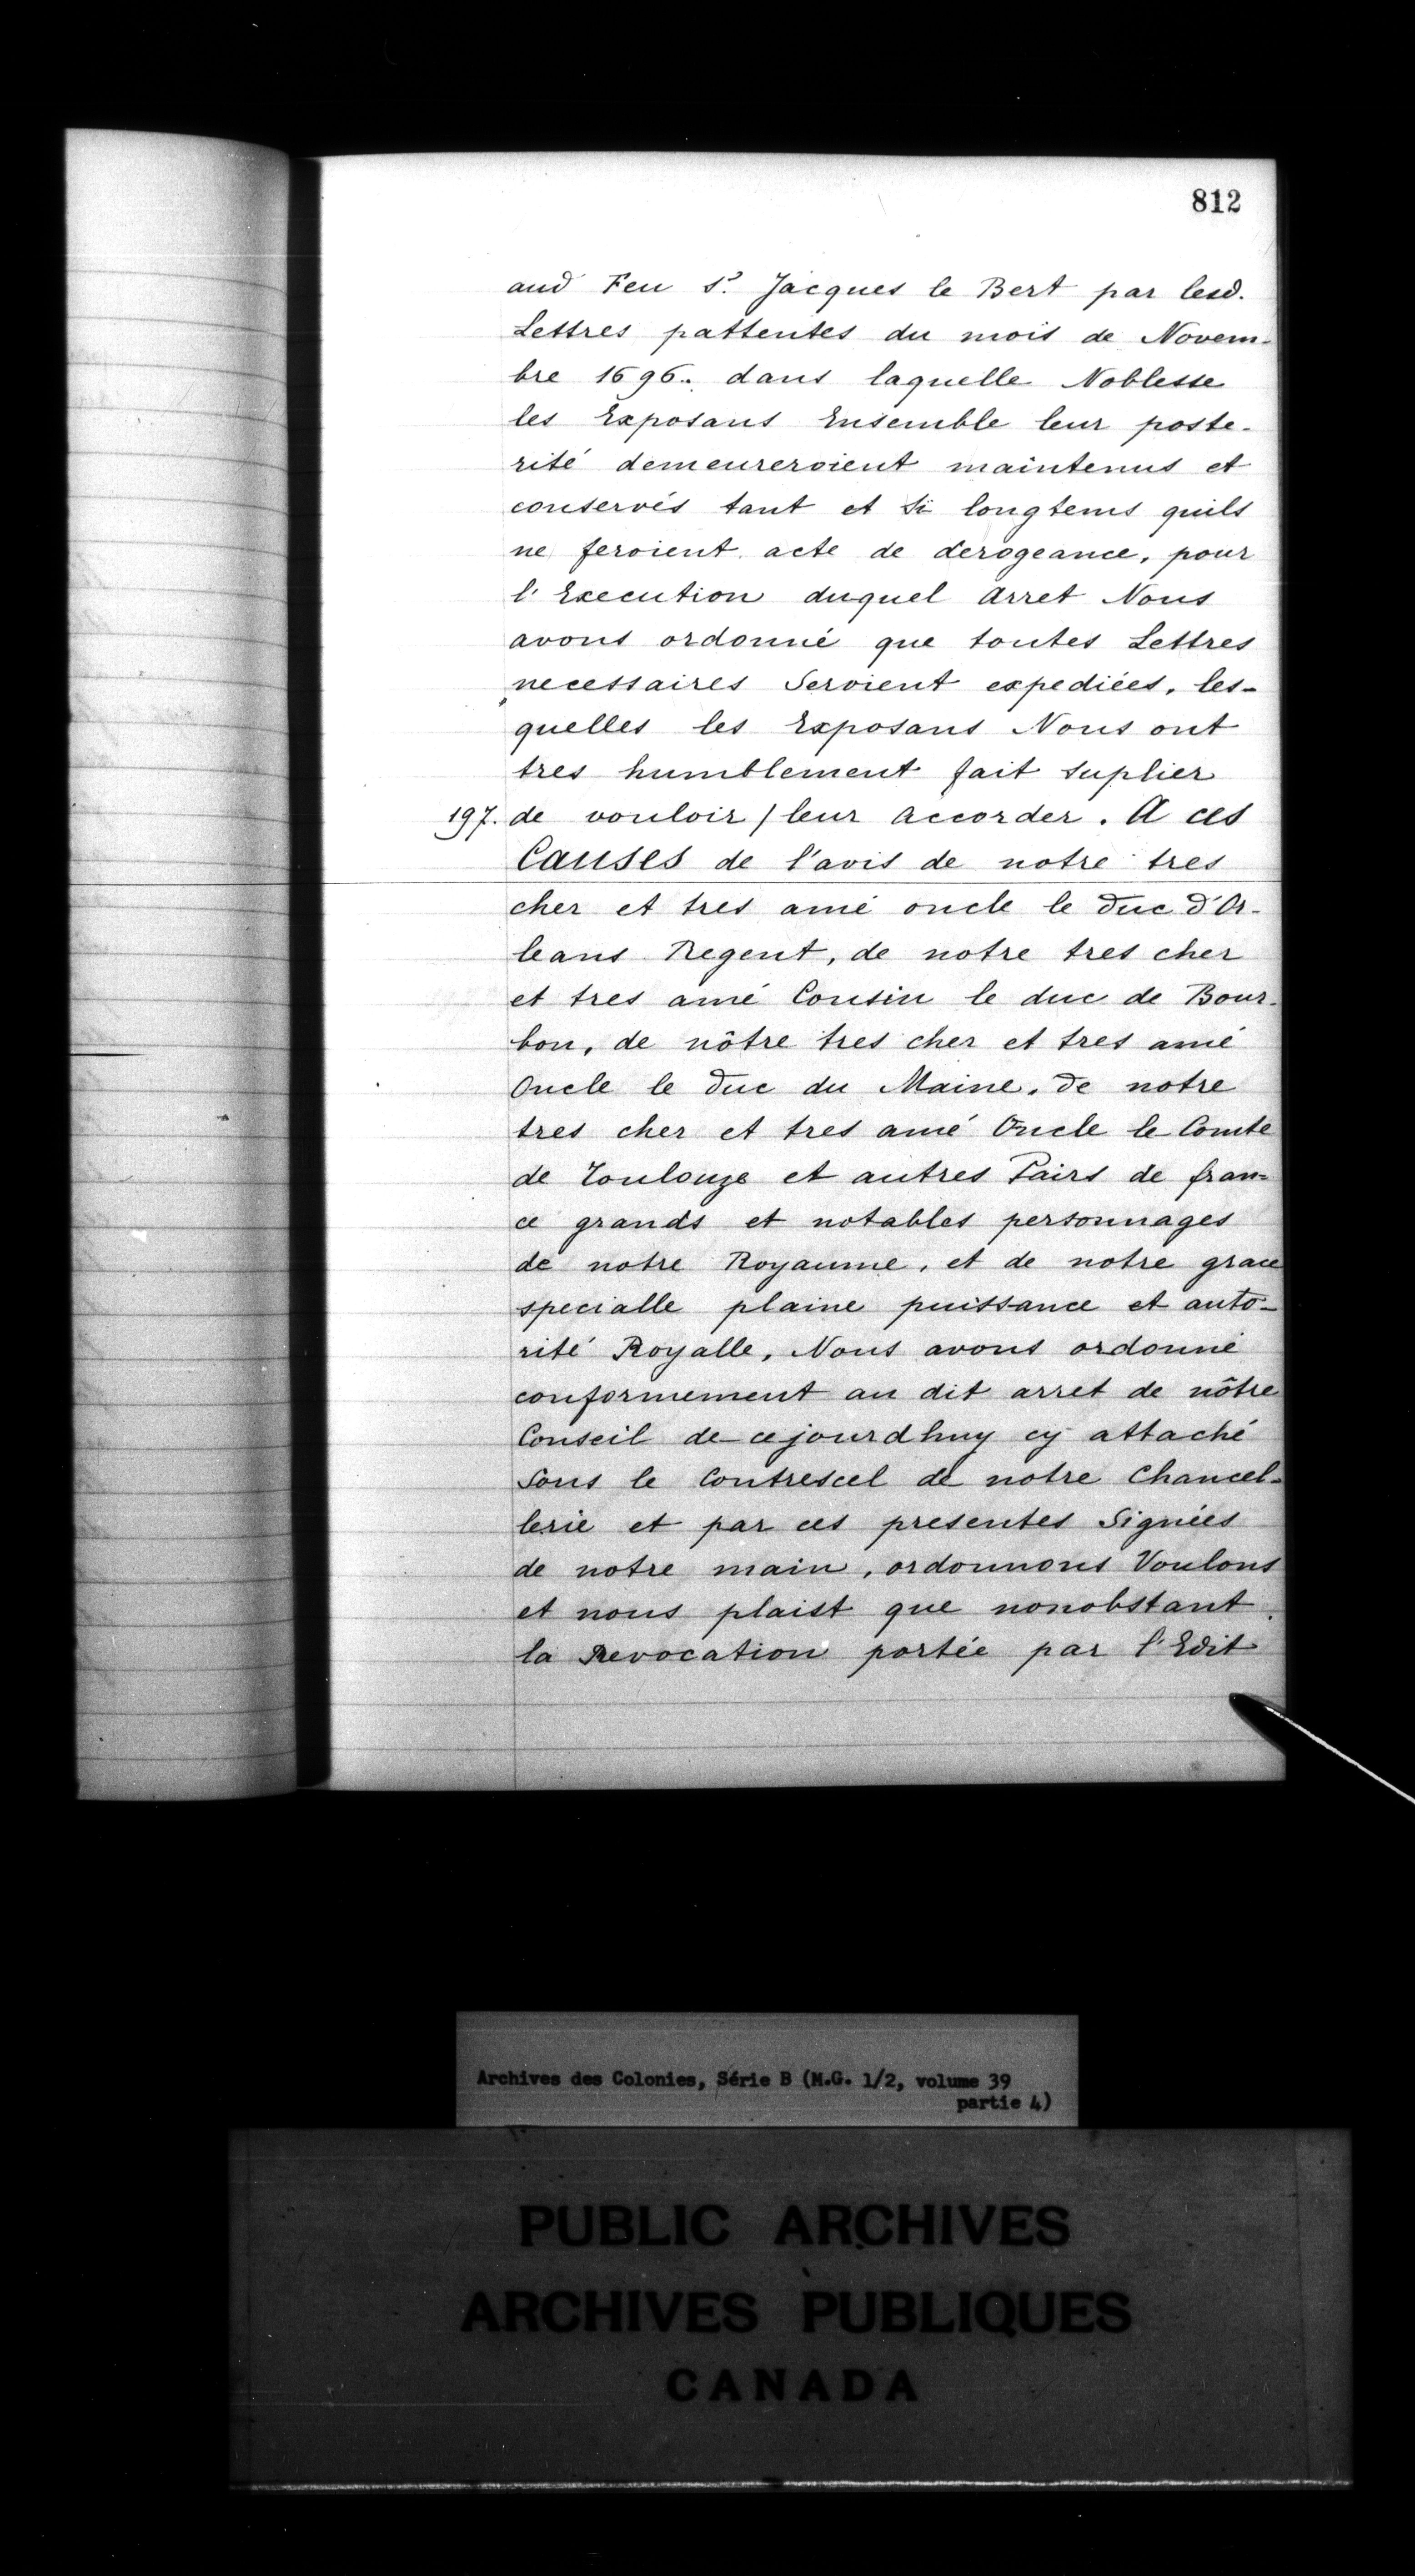 812
aud Feu Sr. Jacques le Bert par lesd.
Lettres pattentes du mois de Novem-
bre 1696. dans laquelle Noblesse
les Exposans Ensemble leur poste-
rité demeureroient maintenus et
conservés tant et Si longtems quils
ne feroient acte de derogeance, pour
l'Execution duquel arret Nous
avons ordonné que toutes Lettres
necessaires Seroient expediées, les-
quelles les Exposans Nous ont
tres humblement fait suplier
197. de vouloir / leur accorder. A ces
Causes de l'avis de notre tres
cher et tres amé oncle le Duc d'Or-
leans Regent, de notre tres cher
et tres amé Cousin le duc de Bour-
bon, de nôtre tres cher et tres amé
Oncle le Duc du Maine, de notre
tres cher et tres amé Oncle le Comte
de Toulouze et autres Pairs de fran-
ce grands et notables personnages
de notre Royaume, et de notre grace
specialle plaine puissance et auto-
rité Royalle, Nous avons ordonné
conformement au dit arret de nôtre
Conseil de cejourdhuy cy attaché
Sous le Contrescel de notre Chancel-
lerie et par ces presentes Signées
de notre main, ordonnons Voulons
et nous plaist que nonobstant
la Revocation portée par l'Edit
Archives des Colonies, Série B (M.G. 1/2, volume 39
partie 4)
PUBLIC ARCHIVES
ARCHIVES PUBLIQUES
CANADA